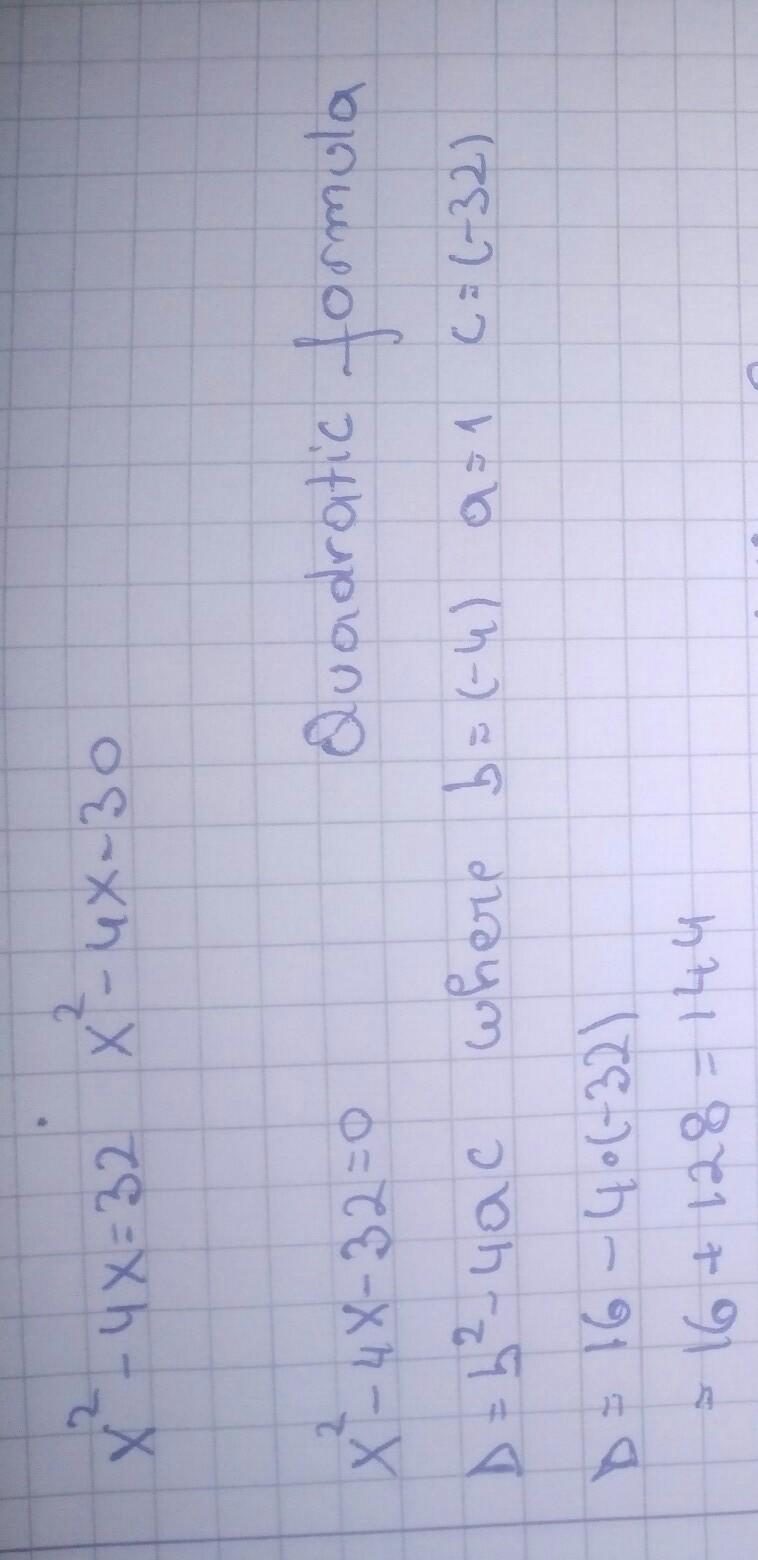 x² - 4x = 32 x² - 4x - 30
x² - 4x - 32 = 0 Quadratic formula
D = b² - 4ac where b = (-4) a = 1 c = (-32)
D = 16 - 4 · (-32)
= 16 + 128 = 144